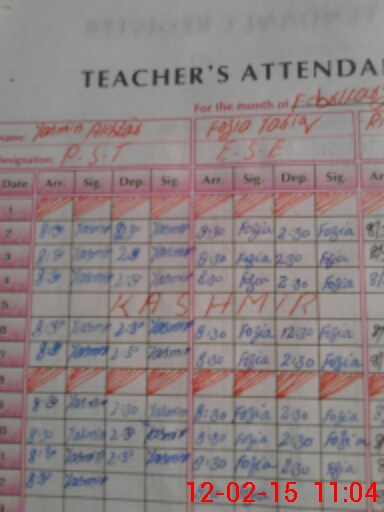 TEACHER'S ATTENDA
For the month of February
Name: Yasmin Akhtar Fozia
Designation: P.S.T E.S.E
Date Arr. Sig. Dep. Sig. Arr. Sig. Dep. Sig. Ar
1
2 8:30 Yasmin 2:30 Yasmin 8:30 Fozia 2:30 Fozia
3 8:30 Yasmin 2:30 Yasmin 8:30 Fozia 2:30 Fozia
4 8:30 Yasmin 2:30 Yasmin 8:30 Fozia 2:30 Fozia
5 KASHMIR
6 8:30 Yasmin 2:30 Yasmin 8:30 Fozia 12:30 Fozia
7 8:30 Yasmin 2:30 Yasmin 8:30 Fozia 2:30 Fozia
8
9 8:30 Yasmin 2:30 Yasmin 8:30 Fozia 2:30 Fozia
0 8:30 Yasmin 2:30 Yasmin 8:30 Fozia 2:30 Fozia
1 8:30 Yasmin 2:30 Yasmin 8:30 Fozia 2:30 Fozia
2 8:30 Yasmin
12-02-15 11:04